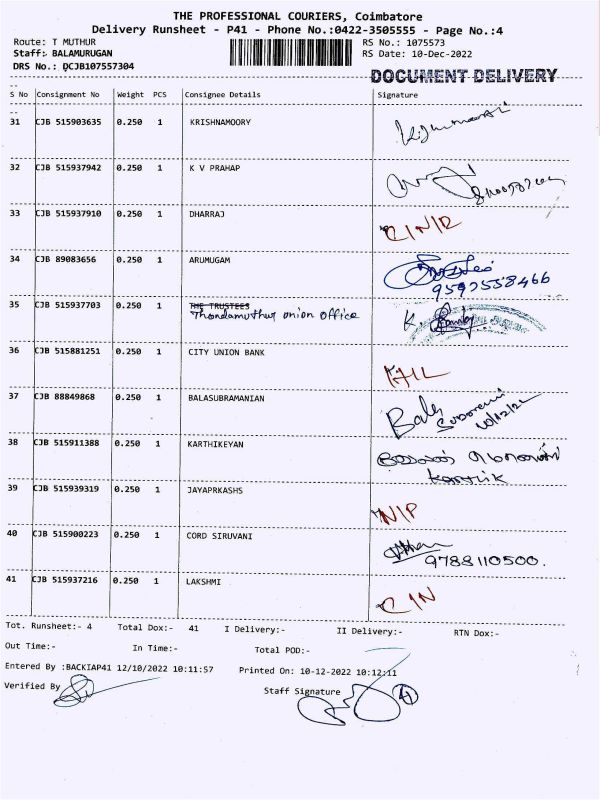 THE PROFESSIONAL COURIERS, Coimbatore
Delivery Runsheet - P41 - Phone No.:0422-3505555 - Page No.:4
Route: T MUTHUR RS No.: 1075573
Staff: BALAMURUGAN RS Date: 10-Dec-2022
DRS No.: DCJB107557304
DOCUMENT DELIVERY
S No Consignment No Weight PCS Consignee Details Signature
31 CJB 515903635 0.250 1 KRISHNAMOORY
32 CJB 515937942 0.250 1 K V PRAHAP
33 CJB 515937910 0.250 1 DHARRAJ
34 CJB 89083656 0.250 1 ARUMUGAM
9597558466
35 CJB 515937703 0.250 1 THE TRUSTEES
Thondamuthur union office K.
36 CJB 515881251 0.250 1 CITY UNION BANK
37 CJB 88849868 0.250 1 BALASUBRAMANIAN
Bala
10/12/22
38 CJB 515911388 0.250 1 KARTHIKEYAN
Karthik
39 CJB 515939319 0.250 1 JAYAPRKASHS
N/P
40 CJB 515900223 0.250 1 CORD SIRUVANI
9788110500.
41 CJB 515937216 0.250 1 LAKSHMI
C/N
Tot. Runsheet:- 4 Total Dox:- 41 I Delivery:- II Delivery:- RTN Dox:-
Out Time:- In Time:- Total POD:-
Entered By :BACKIAP41 12/10/2022 10:11:57 Printed On: 10-12-2022 10:12:11
Verified By Staff Signature